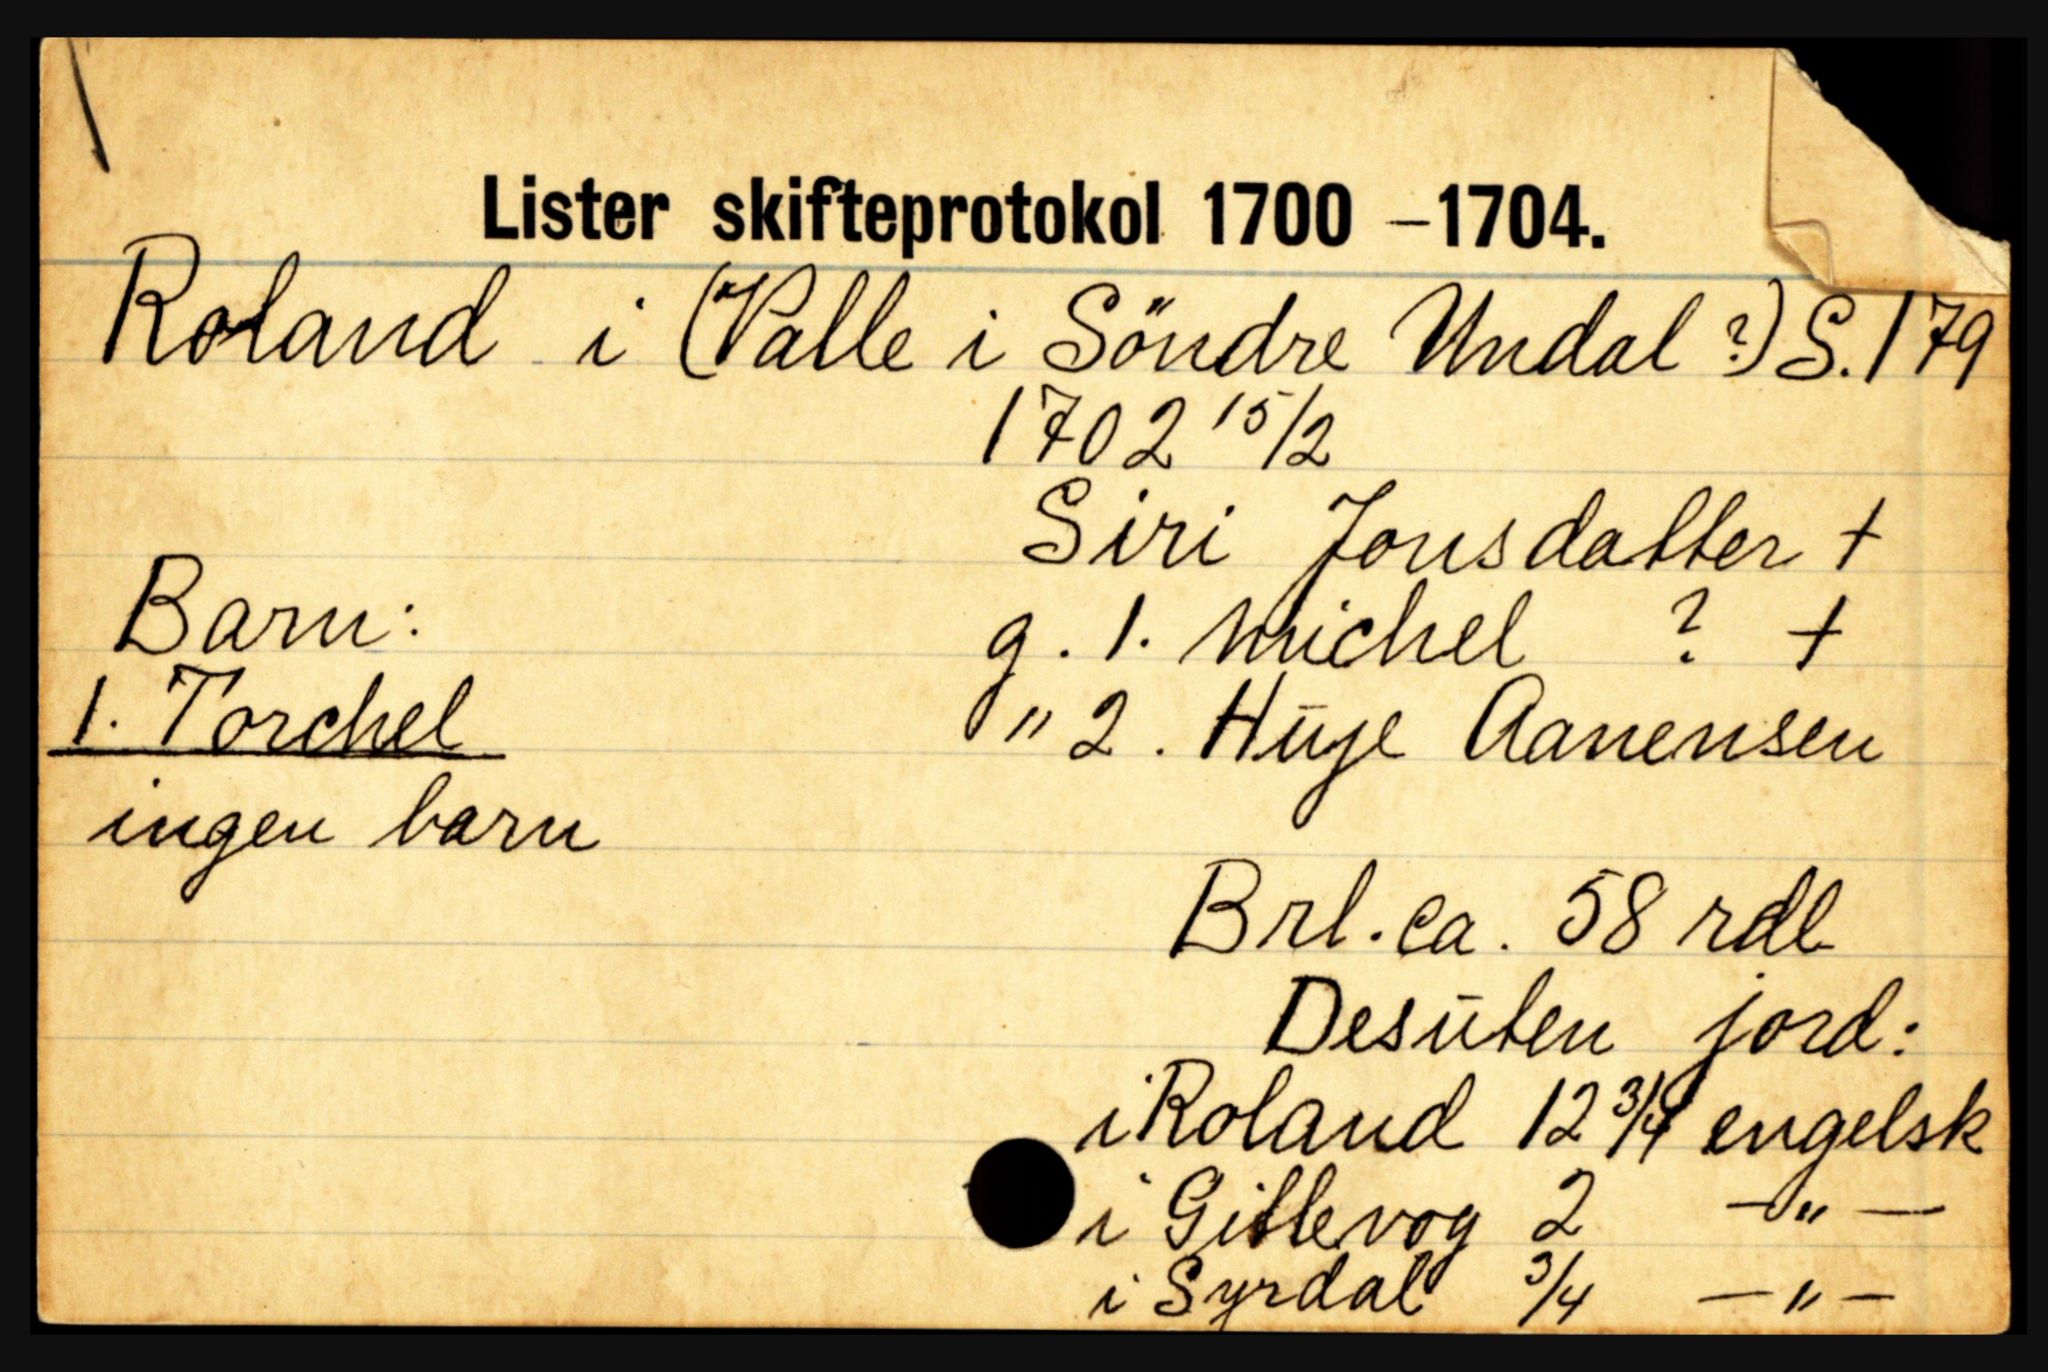 Lister skifteprotokol 1700 – 1704.
Roland i (Valle i Söndre Undal ?) S. 179
1702 15/2
Siri Jonsdatter +
g. 1. Michel ? +
" 2. Hūje Aanensen
Barn:
1. Torchel
ingen barn
Brl. ca. 58 rdl
Desūten jord:
i Roland 12 3/4 engelsk
i Gittevog 2 — " —
i Syrdal 3/4 — " —